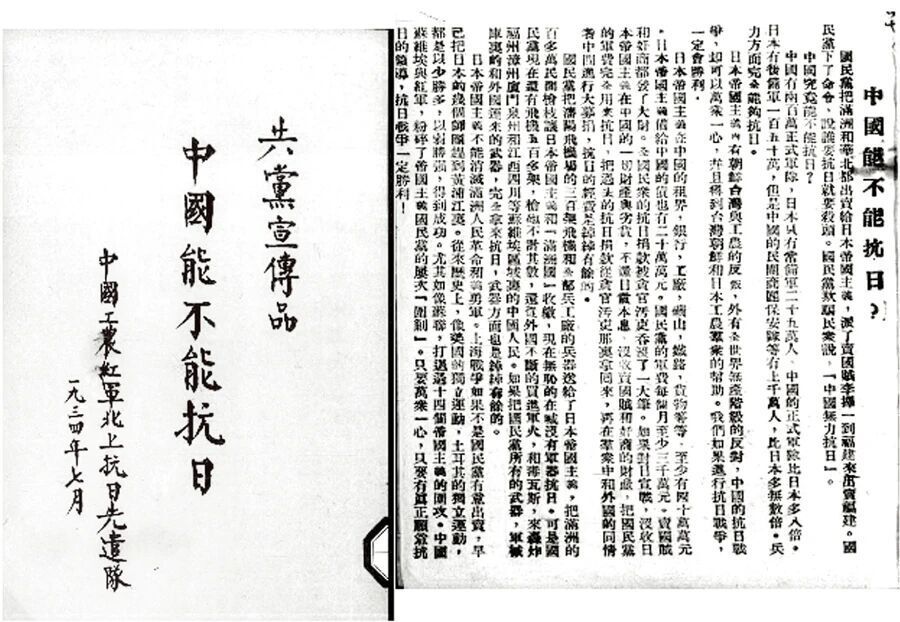 共黨宣傳品
中國能不能抗日
中國工農紅軍北上抗日先遣隊
一九三四年七月
中國能不能抗日?
國民黨把滿洲和華北都出賣給日本帝國主義,派了賣國賊李擇一到福建來出賣福建。國
民黨下了命令,說誰要抗日就要殺頭。國民黨欺騙民衆說,「中國無力抗日」。
中國究竟能不能抗日?
中國有兩百萬正式軍隊,日本只有常備軍二十五萬人,中國的正式軍隊比日本多八倍。
日本有後備軍一百五十萬,但是中國的民團商團保安隊等有上千萬人,比日本多無數倍。兵
力方面完全能夠抗日。
日本帝國主義內有朝鮮台灣與工農的反叛,外有全世界無產階級的反對,中國的抗日戰
爭,却可以萬衆一心,幷且得到台灣朝鮮和日本工農羣衆的幫助。我們如果進行抗日戰爭,
一定會勝利。
日本帝國主義在中國的租界,銀行,工廠,礦山,鐵路,貨物等等,至少有四十萬萬元
。日本帝國主義借給中國的債也有二十萬萬元。國民黨的軍費每個月至少三千萬元。賣國賊
和奸商都發了大財。全國民衆的抗日捐款被貪官汚吏吞沒了一大筆。如果對日宣戰,沒收日
本帝國主義在中國的一切財產與劣貨,不還日債本息,沒收賣國賊和奸商的財產,把國民黨
的軍費完全用來抗日,把過去的抗日捐款從貪官汚吏那裏拿回來,再在羣衆中和外國的同情
者中間進行大募捐,抗日的經費是綽綽有餘的。
國民黨把瀋陽飛機場的三百架飛機和全部兵工廠的兵器送給了日本帝國主義,把滿洲的
百多萬民間槍枝讓日本帝國主義和「滿洲國」收繳,現在無恥的在喊沒有軍器抗日。可是國
民黨現在還有飛機五百多架,槍砲不計其數,還從外國不斷的買進軍火,和毒瓦斯,來轟炸
福州漳州廈門泉州和江西四川等蘇維埃區域裏的中國人民。如果把國民黨所有的武器,軍械
庫裏的和外國運來的武器,完全拿來抗日,武器方面也是綽綽有餘的。
日本帝國主義不能消滅滿洲人民革命和義勇軍。上海戰爭如果不是國民黨有意出賣,早
已把日本的幾個師團趕到黃浦江裏。從來歷史上,像美國的獨立運動,土耳其的獨立運動,
都是以少勝多,以弱勝強,得到成功。尤其如像蘇聯,打退過十四個帝國主義的圍攻。中國
蘇維埃與紅軍,粉碎了帝國主義國民黨的屢次「圍剿」。只要萬衆一心,只要有眞正願意抗
日的領導,抗日戰爭一定勝利!